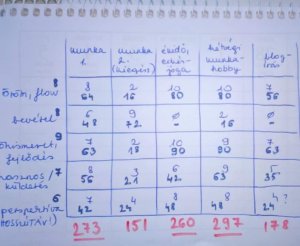 munka 1. munka 2. (kiegész) edző, jóga hétvégi munka- hobby blog- írás
8 öröm, flow 8 64 2 16 10 80 10 80 7 56
8 bevétel 6 48 9 72 ø 2 16 ø
9 önismeret, fejlődés 7 63 2 18 10 90 7 63 7 63
7 hasznos/ küldetés 8 56 3 21 6 42 9 63 5 35
6 perspektíva 7 42 4 24 8 48 8 48 4 24 ?
273 151 260 297 178